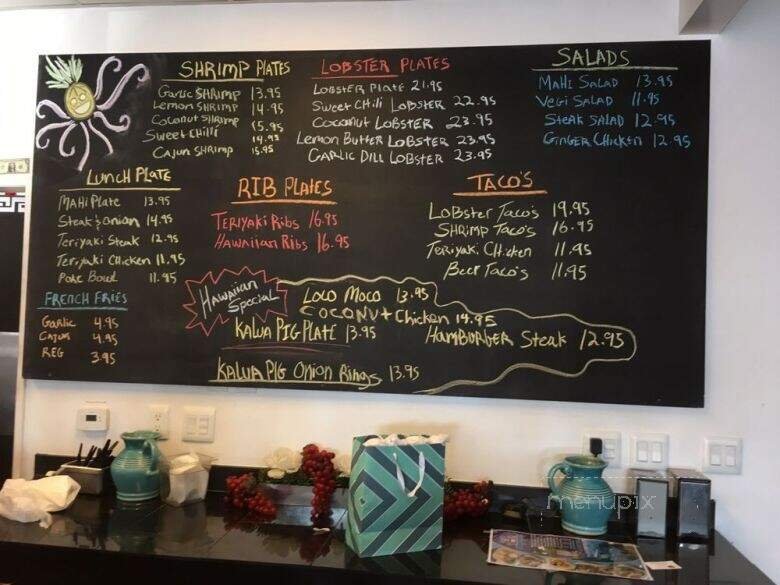 SHRIMP PLATES
Garlic SHRIMP 13.95
Lemon SHRIMP 14.95
Coconut SHRIMP 15.95
Sweet Chili 14.95
Cajun SHRIMP 15.95
LOBSTER PLATES
LOBSTER PLATE 21.95
Sweet Chili LOBSTER 22.95
Coconut LOBSTER 23.95
Lemon Butter LOBSTER 23.95
GARLIC DILL LOBSTER 23.95
SALADS
MAHI SALAD 13.95
VEGI SALAD 11.95
STEAK SALAD 12.95
GINGER CHICKEN 12.95
LUNCH PLATE
MAHI PLATE 13.95
Steak & onion 14.95
Teriyaki Steak 12.95
Teriyaki CHICKEN 11.95
Poke Bowl 11.95
RIB PLATES
TERIYAKI RIBS 16.95
HAWAIIAN RIBS 16.95
TACO'S
LOBSTER TACO'S 19.95
SHRIMP TACO'S 16.95
TERIYAKI CHICKEN 11.95
Beef TACO'S 11.95
FRENCH FRIES
GARLIC 4.95
CAJUN 4.95
REG 3.95
HAWAIIAN SPECIAL
LOCO MOCO 13.95
COCONUT CHICKEN 14.95
KALUA PIG PLATE 13.95
HAMBURGER STEAK 12.95
KALUA PIG ONION RINGS 13.95
menupix